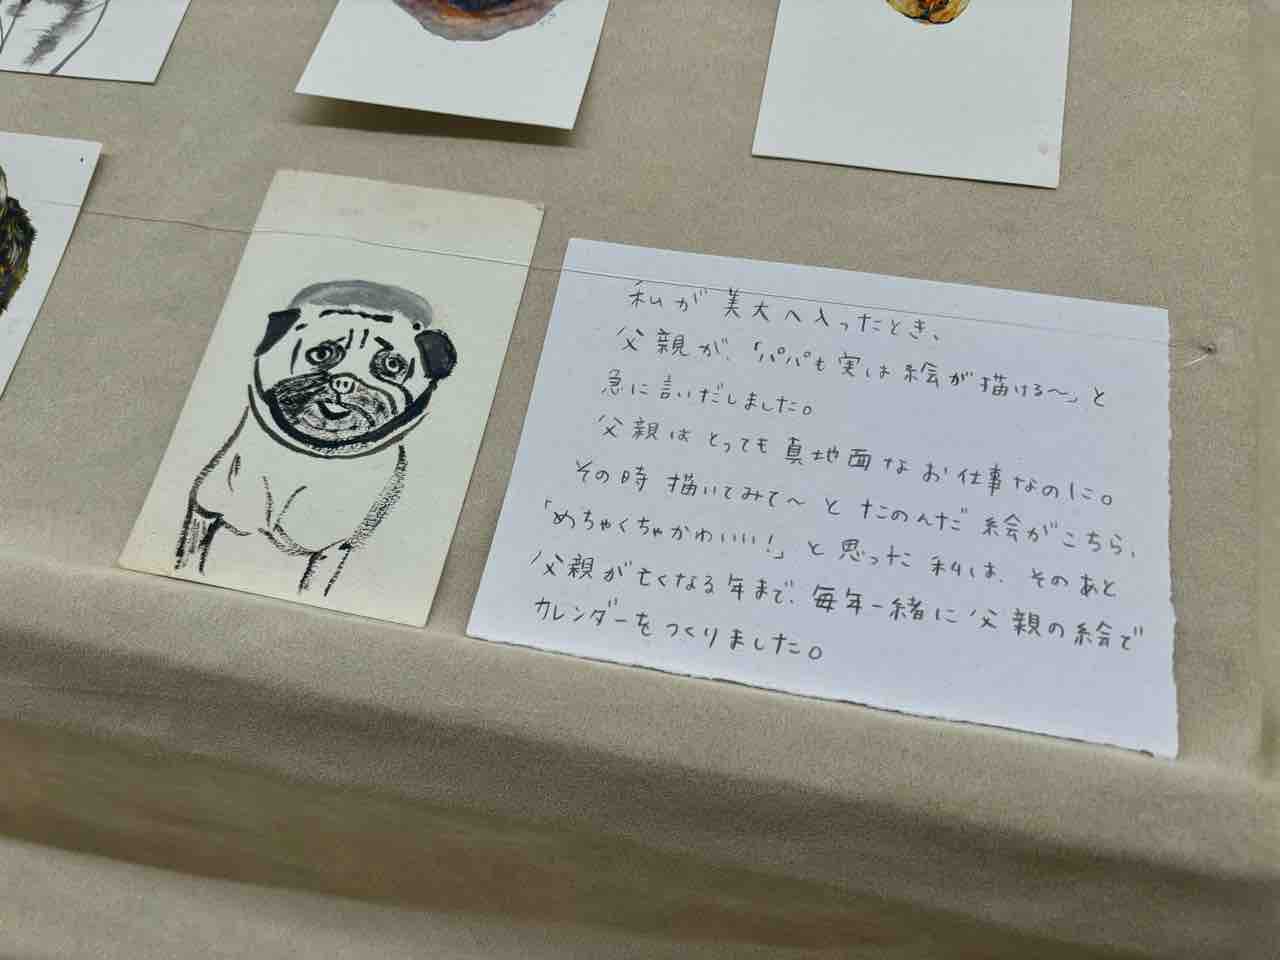 私が美大へ入ったとき、
父親が、「パパも実は絵が描ける〜」と
急に言いだしました。
父親はとっても真地面なお仕事なのに。
その時描いてみて〜とたのんだ絵がこちら、
「めちゃくちゃかわいい!」と思った私は、そのあと
父親が亡くなる年まで、毎年一緒に父親の絵で
カレンダーをつくりました。